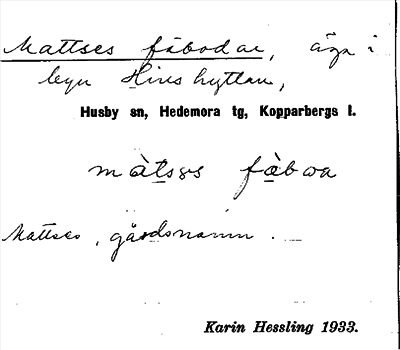 Mattses fäbodar, äga i
byn Hinshyttan,
Husby sn, Hedemora tg, Kopparbergs l.
màtsəs fæ̀bωa
Mattses, gårdsnamn.
Karin Hessling 1933.